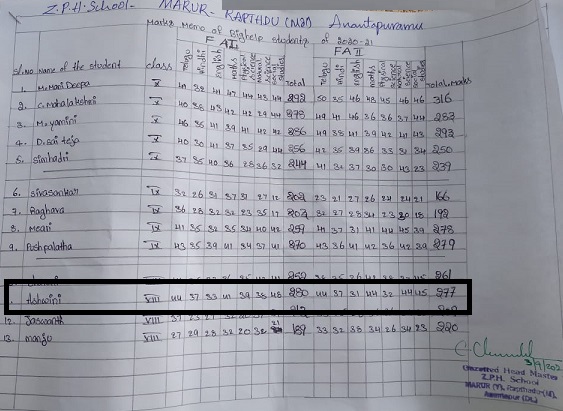 Z.P.H. School- MARUR- RAPTHDU (MDL) Anantapuramu
Marks Memo of Bighelp students of 2020-21
FA I FA II
Sl.No Name of the student class Telugu Hindi English maths Physical science natural science social studies Total Telugu Hindi English maths Physical science natural science social studies Total marks
1. M. Mari Deepa X 292 50 35 46 48 45 46 46 316
2. C. Mahalakshmi X 40 38 43 42 42 29 44 278 49 41 46 36 36 37 44 283
3. M. yamini X 46 35 41 39 41 42 42 286 49 38 41 39 42 41 43 293
4. D. sai teja X 40 30 41 37 35 29 44 256 42 35 39 36 33 31 34 250
5. simhadri X 37 35 40 36 28 36 32 244 41 34 37 30 30 43 23 239
6. sivasankar IX 32 26 31 37 31 27 12 202 23 21 27 26 24 24 21 166
7. Raghava IX 36 28 32 32 23 35 17 203 32 27 28 34 23 30 18 192
8. IX 41 35 32 35 34 40 42 259 41 37 31 41 44 45 39 278
9. Pushpalatha IX 43 35 39 41 34 37 41 270 43 36 41 42 36 42 39 279
252 261
Ashwini VIII 44 37 33 41 39 38 48 280 44 37 31 44 32 44 45 277
12. Jaswanth VIII
13. manju VIII 27 29 28 32 20 32 21 189 33 32 38 34 26 34 23 220
3/9/202
Gazetted Head Master
Z.P.H. School
MARUR (V), Rapthadu(M),
Anantapur (Dt.)